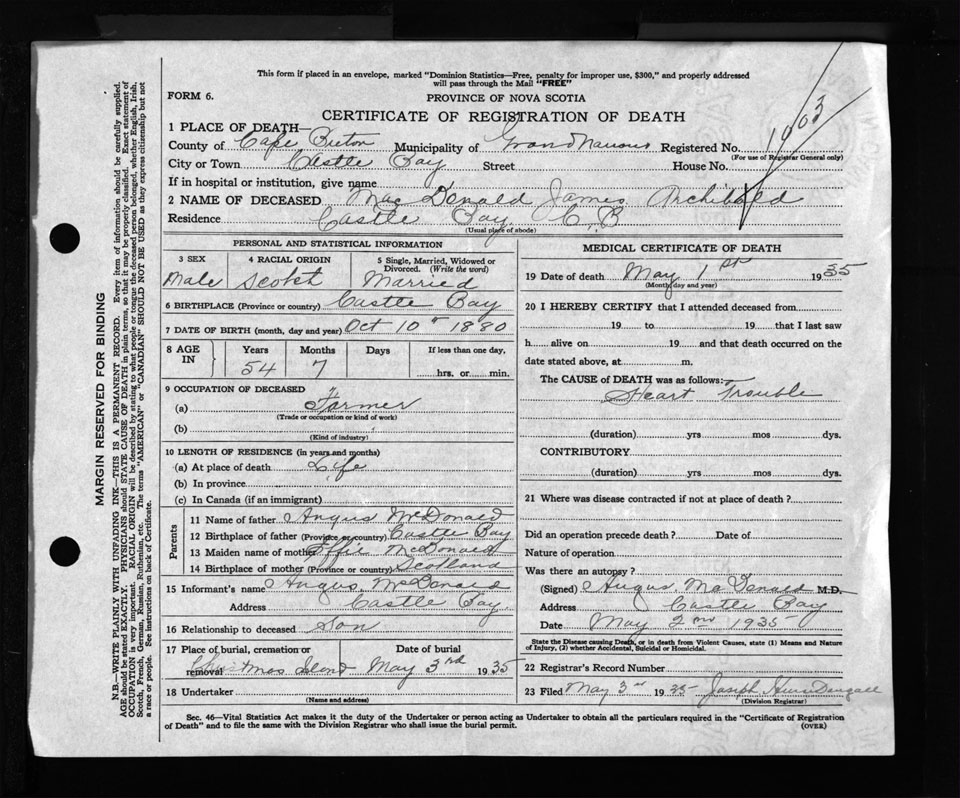 This form if placed in an envelope, marked "Dominion Statistics—Free, penalty for improper use, $300," and properly addressed
will pass through the Mail "FREE"
FORM 6.
PROVINCE OF NOVA SCOTIA
CERTIFICATE OF REGISTRATION OF DEATH
1 PLACE OF DEATH—
County of Cape Breton Municipality of Grand Narrows Registered No. 1003
(For use of Registrar General only)
City or Town Castle Bay Street House No.
If in hospital or institution, give name
2 NAME OF DECEASED MacDonald James Archibald
Residence Castle Bay C.B
(Usual place of abode)
PERSONAL AND STATISTICAL INFORMATION
3 SEX 4 RACIAL ORIGIN 5 Single, Married, Widowed or Divorced. (Write the word)
Male Scotch Married
6 BIRTHPLACE (Province or country) Castle Bay
7 DATE OF BIRTH (month, day and year) Oct 10 1880
8 AGE IN Years Months Days If less than one day,
54 7 hrs. or min.
9 OCCUPATION OF DECEASED
(a) Farmer
(Trade or occupation or kind of work)
(b)
(Kind of industry)
10 LENGTH OF RESIDENCE (in years and months)
(a) At place of death Life
(b) In province
(c) In Canada (if an immigrant)
Parents
11 Name of father Angus McDonald
12 Birthplace of father (Province or country) Castle Bay
13 Maiden name of mother Effie McDonald
14 Birthplace of mother (Province or country) Scotland
15 Informant's name Angus McDonald
Address Castle Bay.
16 Relationship to deceased Son
17 Place of burial, cremation or removal Date of burial
Christmas Island May 3rd 1935
18 Undertaker
(Name and address)
MEDICAL CERTIFICATE OF DEATH
19 Date of death May 1st 1935
(Month, day and year)
20 I HEREBY CERTIFY that I attended deceased from
19 to 19 that I last saw
h alive on 19 and that death occurred on the
date stated above, at m.
The CAUSE of DEATH was as follows:
Heart Trouble
(duration) yrs mos dys.
CONTRIBUTORY
(duration) yrs mos dys.
21 Where was disease contracted if not at place of death?
Did an operation precede death? Date of
Nature of operation
Was there an autopsy?
(Signed) Angus MacDonald M.D.
Address Castle Bay
Date May 2nd 1935
State the Disease causing Death, or in death from Violent Causes, state (1) Means and Nature
of Injury, (2) whether Accidental, Suicidal or Homicidal.
22 Registrar's Record Number
23 Filed May 3rd 1935 Joseph
(Division Registrar)
Sec. 46—Vital Statistics Act makes it the duty of the Undertaker or person acting as Undertaker to obtain all the particulars required in the "Certificate of Registration
of Death" and to file the same with the Division Registrar who shall issue the burial permit. (OVER)
MARGIN RESERVED FOR BINDING
N.B.—WRITE PLAINLY WITH UNFADING INK—THIS IS A PERMANENT RECORD. Every item of information should be carefully supplied.
AGE should be stated EXACTLY. PHYSICIANS should STATE CAUSE OF DEATH in plain terms, so that it may be properly classified. Exact statement of
OCCUPATION is very important. RACIAL ORIGIN will be described by stating to what people or tongue the deceased person belonged, whether English, Irish,
Scotch, French, German, Russian, Ruthenian, etc. The terms "AMERICAN" or "CANADIAN" SHOULD NOT BE USED as they express citizenship but not
a race or people. See instructions on back of Certificate.